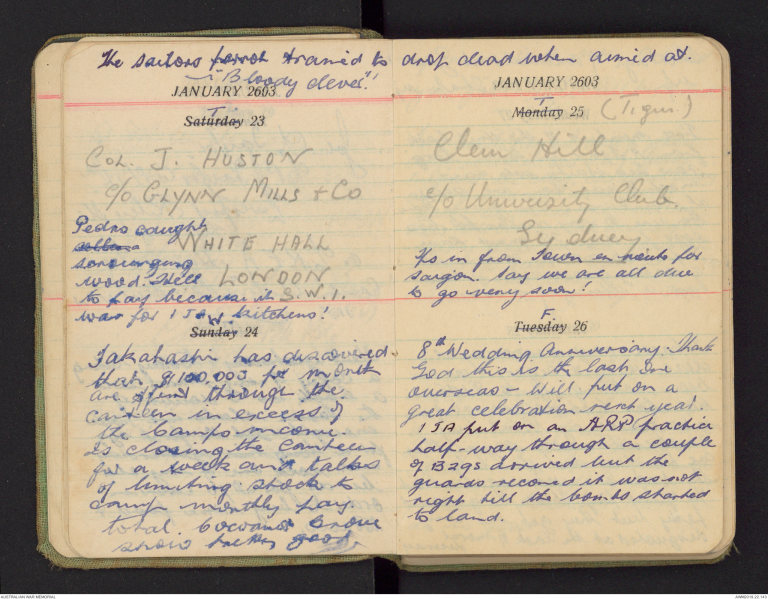 The sailors parrot trained to drop dead when aimed at.
"Bloody clever"!
JANUARY 2603
T.
Saturday 23
COL. J. HUSTON
C/o GLYNN MILLS & CO
WHITE HALL
LONDON
S.W.1.
Pedro caught
scrounging
wood. Hell
to pay because it
was for IJA kitchens!
Sunday 24
Takahashi has discovered
that $100,003 per month
are spent through the
canteen in excess of
the Camps income.
Is closing the Canteen
for a week and talks
of limiting stock to
camp monthly pay
total.
show trading good
JANUARY 2603
T.
Monday 25
Clem Hill
c/o University Club
Sydney
Ko in from Town en route for
Saigon. Say we are all due
to go very soon!
F.
Tuesday 26
8th Wedding Anniversary. Thank
God this is the last one
overseas - Will put on a
great celebration next year.
IJA put on an ARP practice
half-way through a couple
of B29s arrived but the
guards reckoned it was not
right till the bombs started
to land.
AUSTRALIAN WAR MEMORIAL